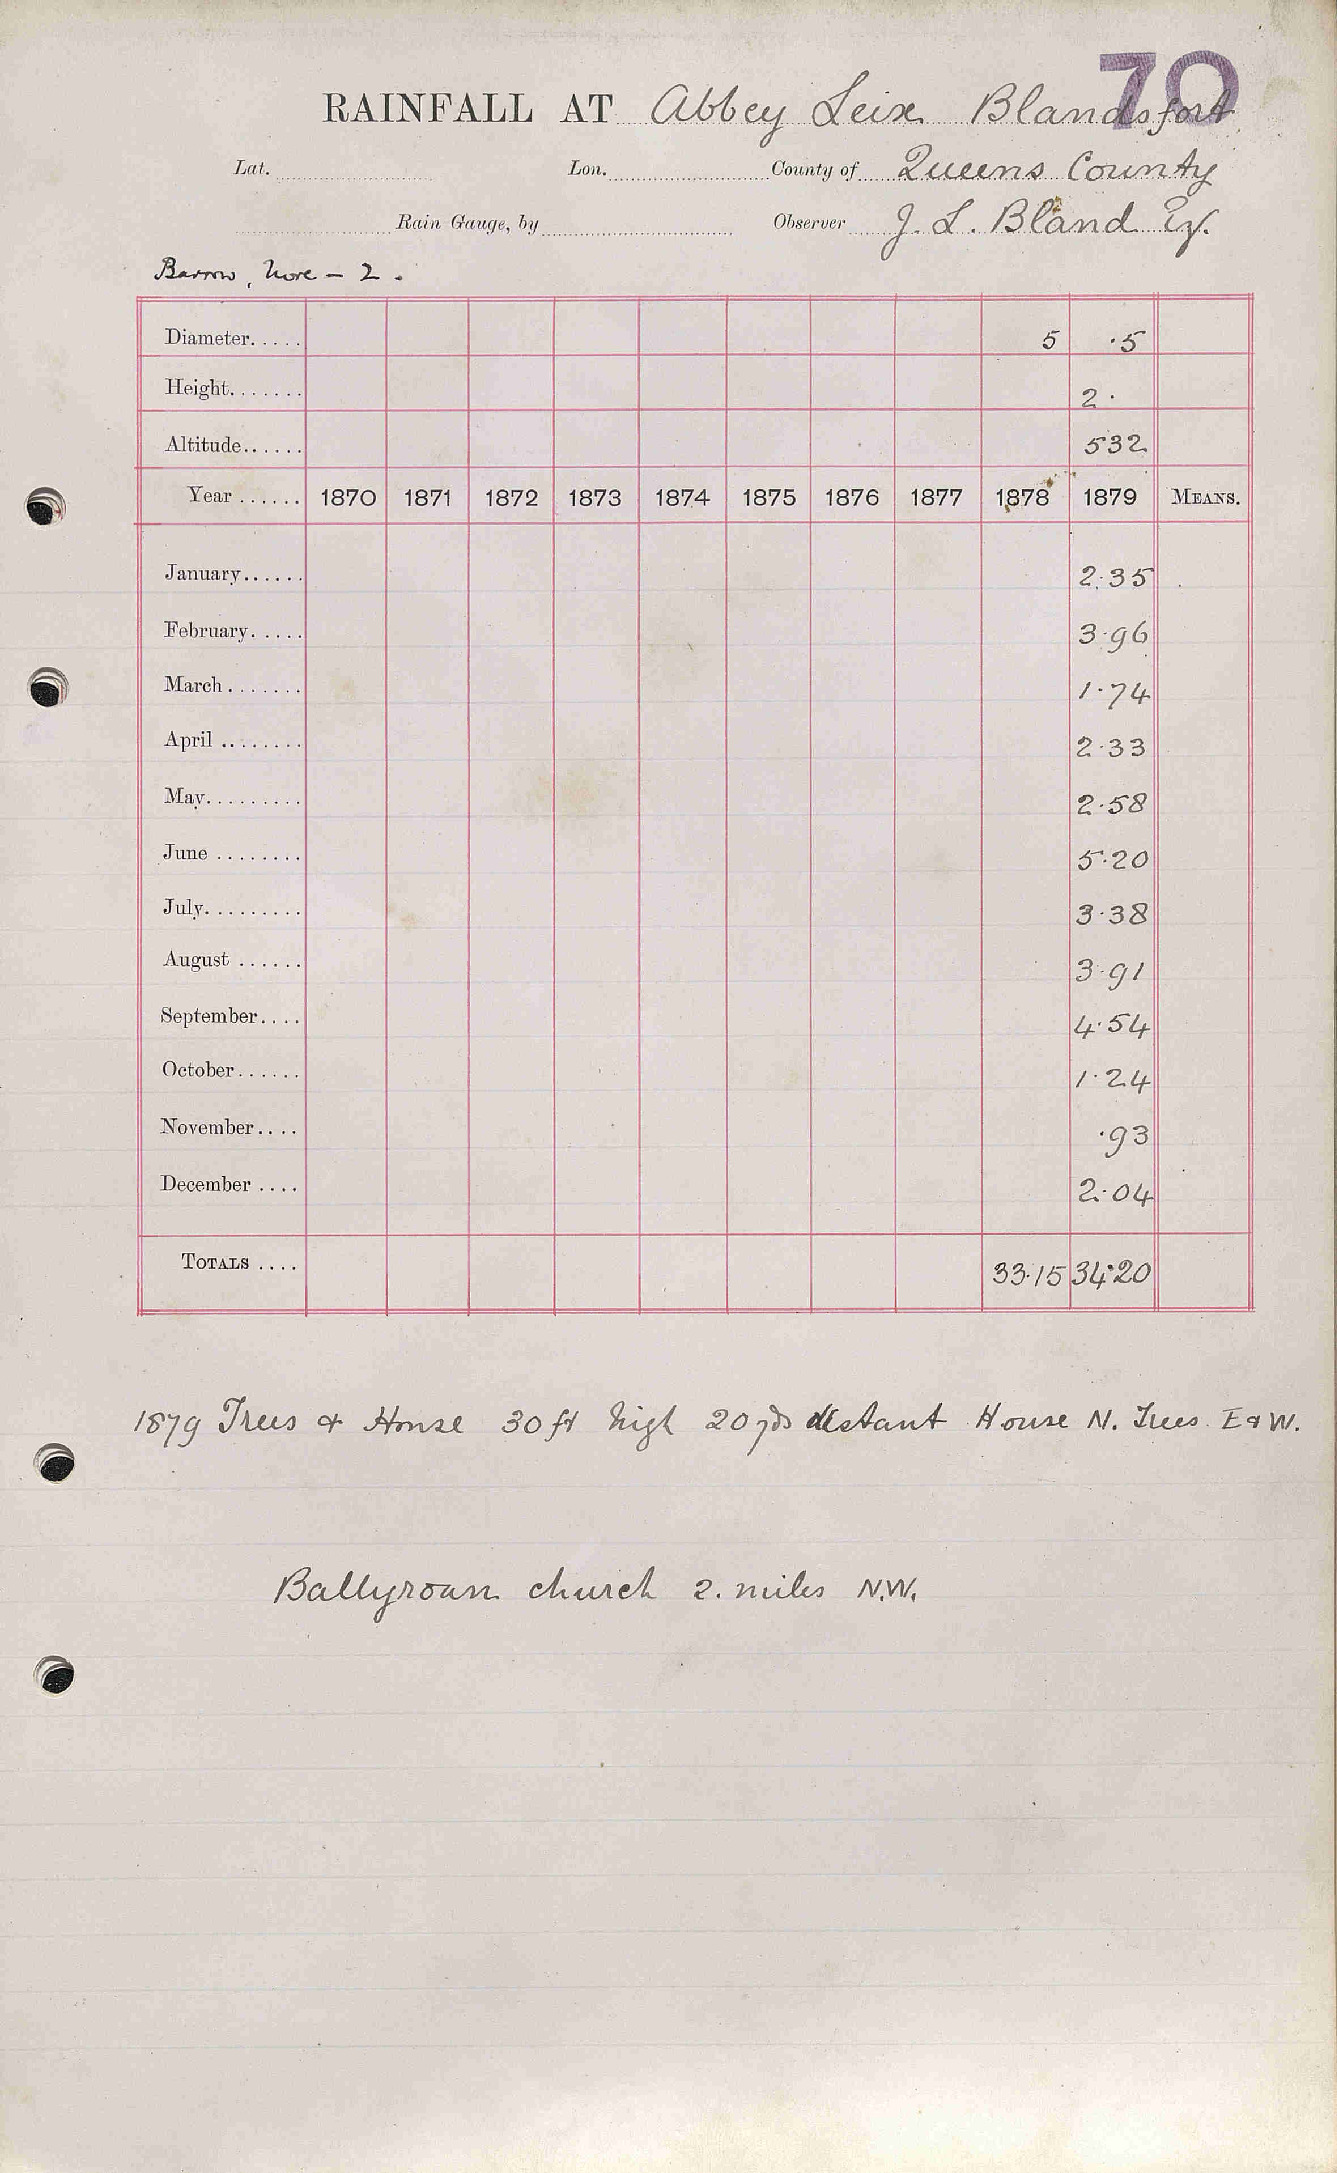 70
RAINFALL AT Abbey Leix Blandsfort
Lat. Lon. County of Queens County
Rain Gauge, by Observer J. L. Bland Esq.
Barrow, Nore - 2.
Diameter..... 5 .5
Height....... 2.
Altitude...... 532
Year ...... 1870 1871 1872 1873 1874 1875 1876 1877 1878 1879 MEANS.
January...... 2.35
February..... 3.96
March ....... 1.74
April ........ 2.33
May......... 2.58
June ........ 5.20
July......... 3.38
August ...... 3.91
September.... 4.54
October...... 1.24
November.... .93
December .... 2.04
TOTALS .... 33.15 34.20
1879 Trees & House 30 ft high 20 yds distant House N. Trees E & W.
Ballyroan church 2. miles N.W.